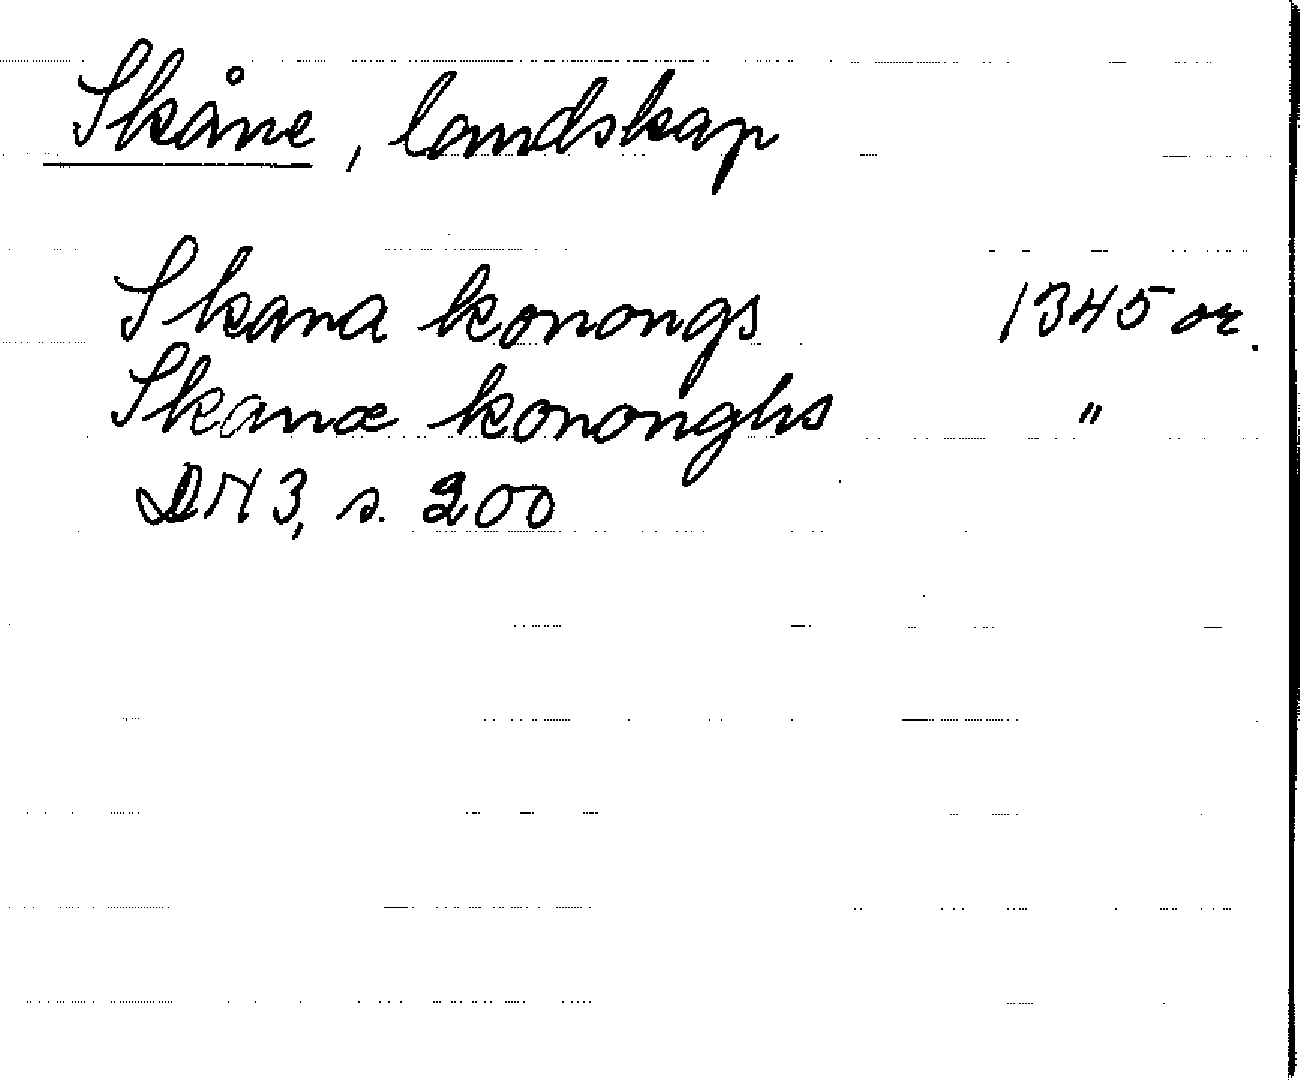 Skåne, landskap
Skana konongs 1345 or.
Skanæ kononghs "
DN 3, s. 200